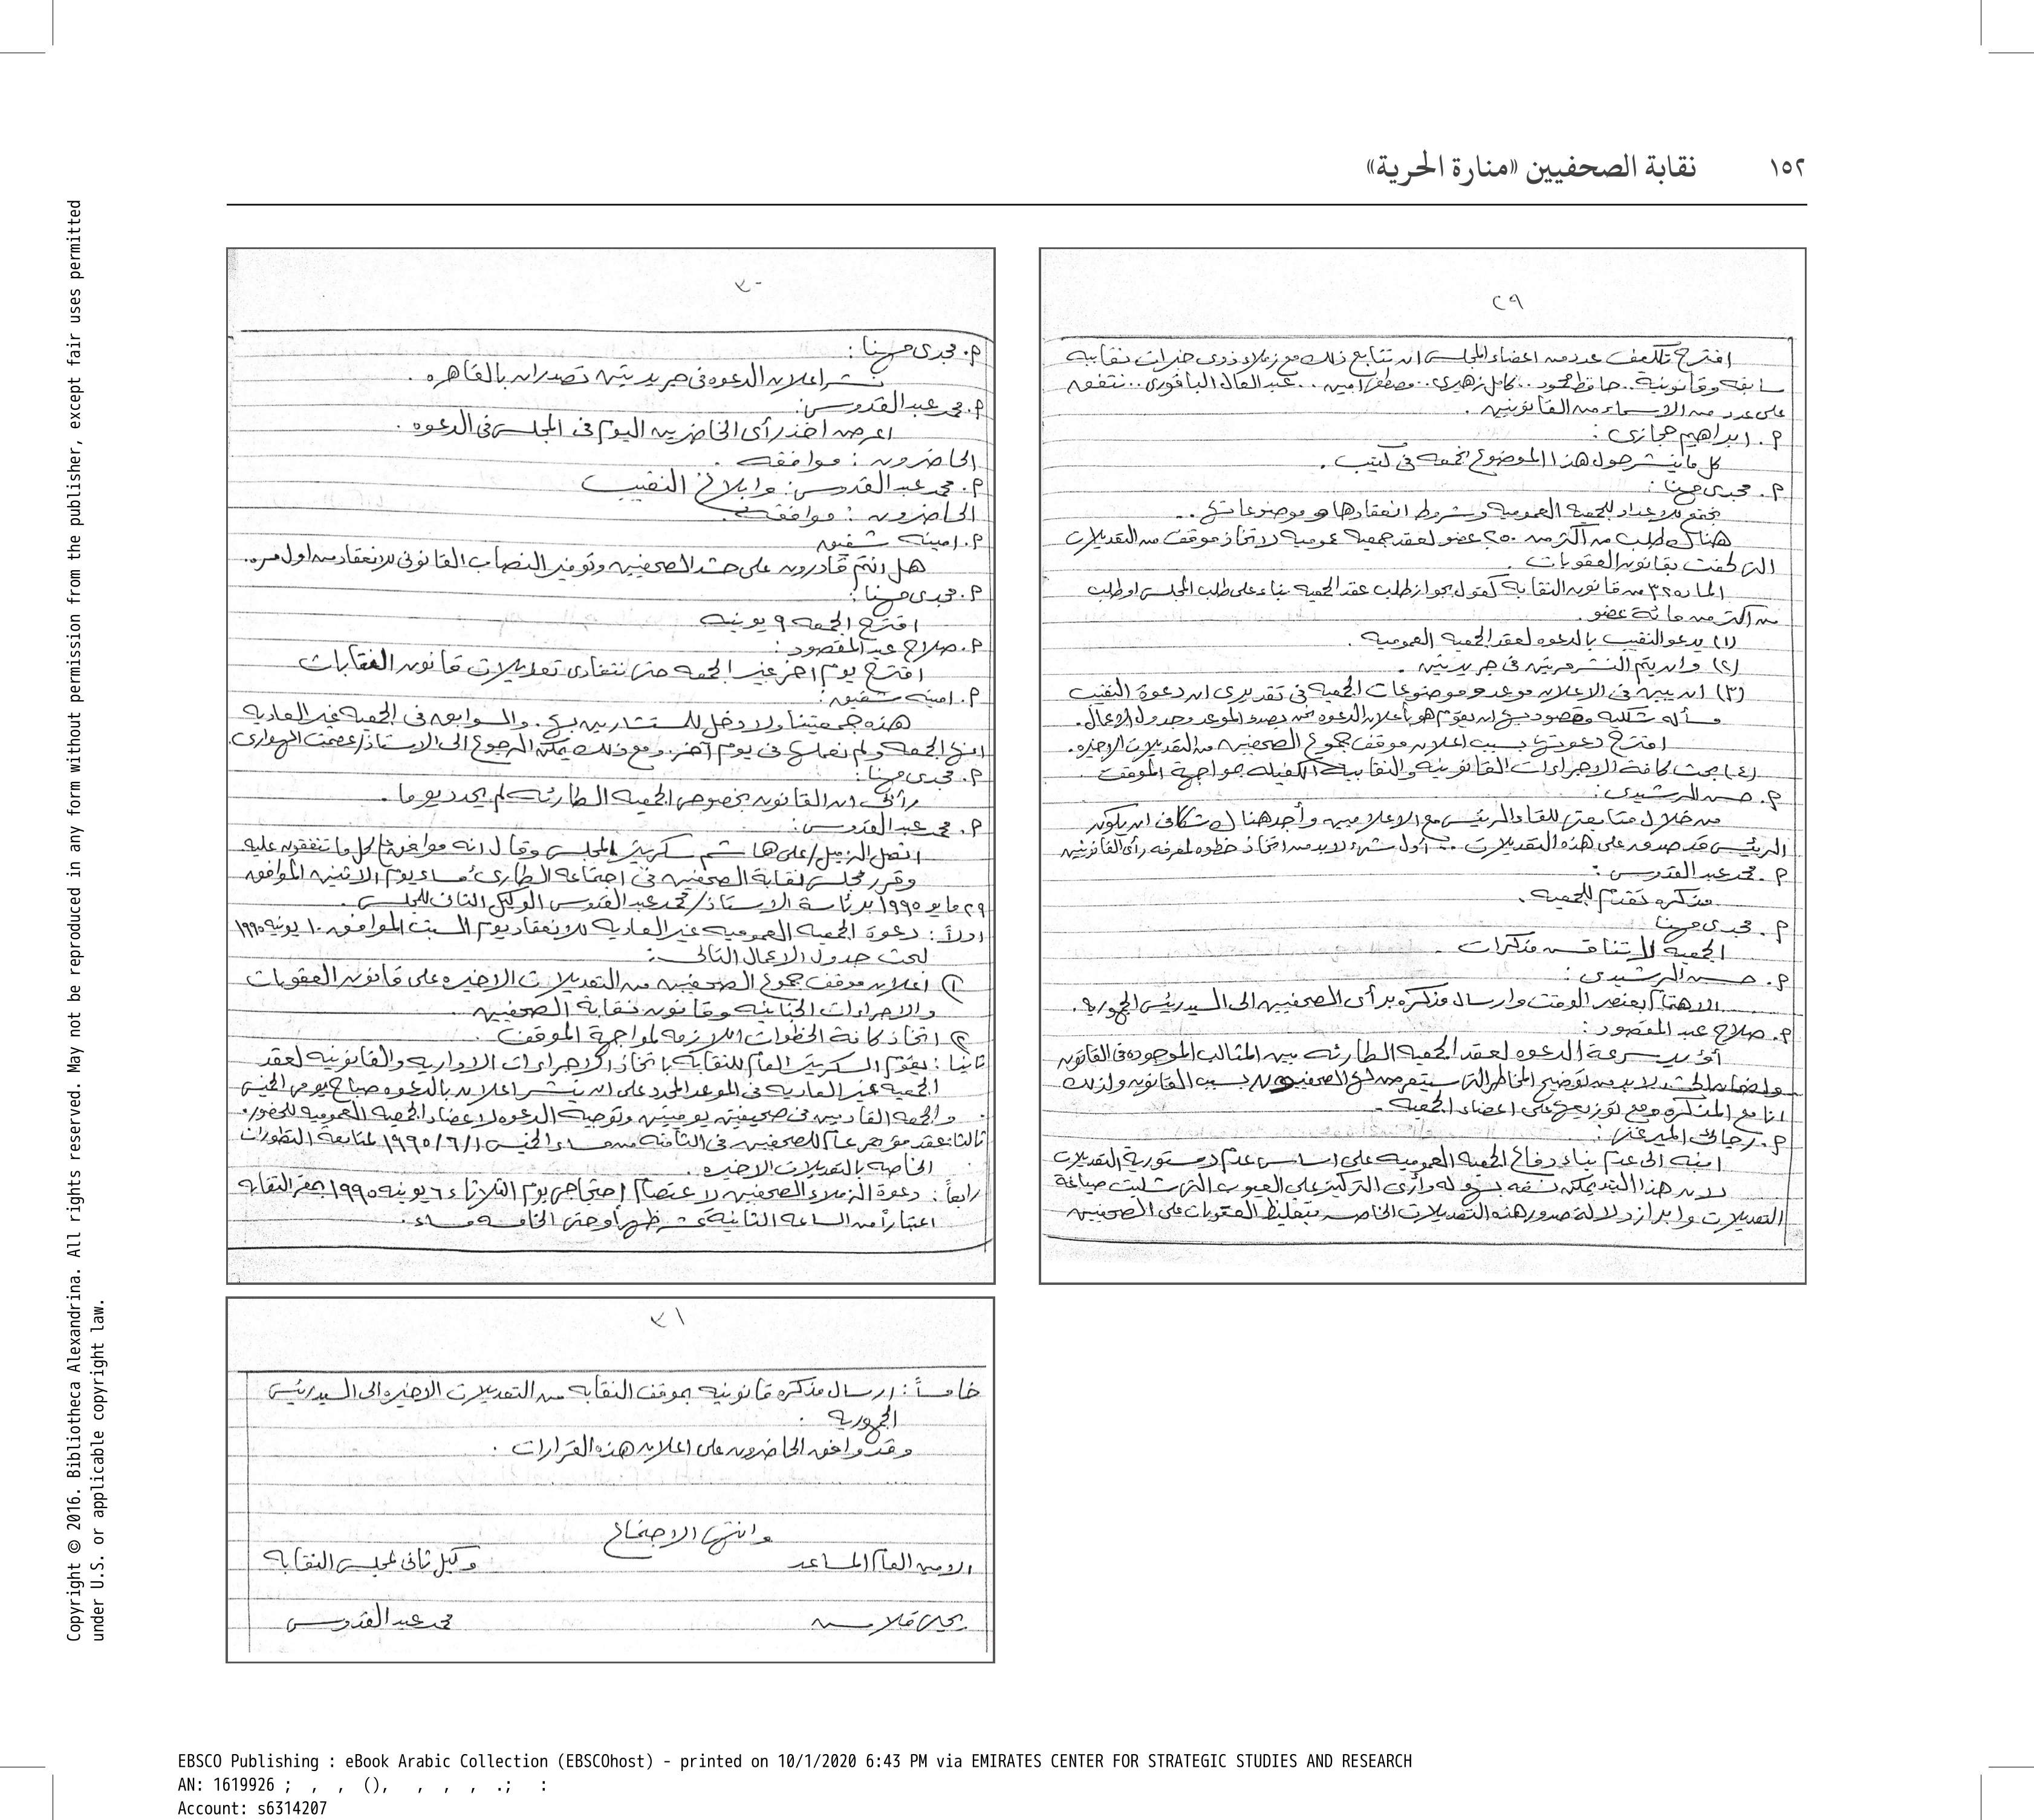 ١٥٢ نقابة الصحفيين «منارة الحرية»
٢٩
اقترح تكليف عدد من اعضاء المجلس ان تتابع ذلك مع زملاء ذوى خبرات نقابيه
سابقه وقانونية.. حافظ محمود.. كامل زهيرى.. مصطفى امين... عبدالعال الباقورى.. نتفق
على عدد من الاسماء من القانونين.
م. ابراهيم حجازى:
كل ما ينشر حول هذا الموضوع نجمعه فى كتيب.
م. مجدى مهنا:
نجتمع للاعداد للجمعية العموميه وشروط انعقادها وموضوعاتها..
هناك طلب من اكثر من ٢٥٠ عضو لعقد جمعيه عموميه لاتخاذ موقف من التعديلات
التى لحقت بقانون العقوبات.
الماده ٣٢ من قانون النقابة تقول بجواز طلب عقد الجمعيه بناء على طلب المجلس او طلب
من اكثر من مائة عضو.
(١) يدعو النقيب بالدعوه لعقد الجمعية العموميه.
(٢) وان يتم النشر مرتين فى جريدتين.
(٣) ان يبين فى الاعلان موعد وموضوعات الجمعيه فى تقديرى ان دعوة النقيب
مسأله شكليه ومقصود بها ان يقوم هو بأعلان الدعوه نحن بصدد الموعد وجدول الاعمال.
اقترح دعوتها بسبب اعلان موقف جموع الصحفيين من التعديلات الاخيره.
(٤) بحث كافة الاجراءات القانونيه والنقابيه الكفيله بمواجهة الموقف
م. حسن الرشيدى:
من خلال متابعتى للقاء الرئيس مع الاعلاميين وأجد هناك شكا فى ان يكون
الرئيس قد صدق على هذه التعديلات.. أول شىء لابد من اتخاذ خطوه لمعرفه رأى القانونين
م. محمد عبد القدوس:
مذكره تقدم للجمعيه.
م. مجدى مهنا
الجمعيه لا تناقش مذكرات.
م. حسن الرشيدى:
الاهتمام بعنصر الوقت وارسال مذكره برأى الصحفيين الى السيد رئيس الجمهوريه.
م. صلاح عبد المقصود:
أؤيد سرعة الدعوه لعقد الجمعيه الطارئه بين المثالب الموجوده فى القانون
ولضمان الحشد لابد من توضيح المخاطر التى سيتعرض لها الصحفيون بسبب القانون ولذلك
انا مع المذكره ومع توزيعها على اعضاء الجمعيه.
م. رجائى الميرغنى:
انبه الى عدم بناء دفاع الجمعيه العموميه على اساس عدم دستورية التعديلات
لان هذا البند يمكن نسفه بسهوله وأرى التركيز على العيوب التى شابت صياغة
التعديلات وابراز دلالة صدور هذه التعديلات الخاصه بتغليظ العقوبات على الصحفيين
٣٠
م. مجدى مهنا:
ننشر اعلان الدعوه فى جريدتين تصدران بالقاهره.
م. محمد عبد القدوس:
اعرض اخذ رأى الحاضرين اليوم فى المجلس فى الدعوه.
الحاضرون: موافقه.
م. محمد عبد القدوس: وابلاغ النقيب
الحاضرون: موافقه.
م. امينه شفيق
هل انتم قادرون على حشد الصحفيين وتوفير النصاب القانونى للانعقاد من اول مره.
م. مجدى مهنا:
اقترح الجمعه ٩ يونيه
م. صلاح عبد المقصود:
اقترح يوم اخر غير الجمعه حتى نتفادى تعديلات قانون النقابات
م. امينه شفيق:
هذه جمعيتنا ولا دخل للمستشارين بها. والسوابق فى الجمعيه غير العاديه
انها الجمعه ولم نعملها فى يوم آخر. ومع ذلك يمكن الرجوع الى الاستاذ/ عصمت الهوارى.
م. مجدى مهنا:
رأئى ان القانون بخصوص الجمعيه الطارئه لم يحدد يوما.
م. محمد عبد القدوس:
اتصل الزميل/ على هاشم سكرتير المجلس وقال انه موافق على كل ما تتفقون عليه
وقرر مجلس نقابة الصحفيين فى اجتماعه الطارىء مساء يوم الاثنين الموافق
٢٩ مايو ١٩٩٥ برئاسة الاستاذ/ محمد عبد القدوس الوكيل الثانى للمجلس.
اولاً: دعوة الجمعيه العموميه غير العاديه للانعقاد يوم السبت الموافق ١٠ يونيه ١٩٩٥
لبحث جدول الاعمال التالى:
١) اعلان موقف جموع الصحفيين من التعديلات الاخيره على قانون العقوبات
والاجراءات الجنائيه وقانون نقابة الصحفيين.
٢) اتخاذ كافة الخطوات اللازمه لمواجهة الموقف.
ثانيا: يقوم السكرتير العام للنقابه باتخاذ كل الاجراءات الاداريه والقانونيه لعقد
الجمعيه غير العاديه فى الموعد المحدد على ان ينشر اعلان بالدعوه صباح يومى الخميس
والجمعه القادمين فى صحيفتين يوميتين وتوجيه الدعوه لاعضاء الجمعيه العموميه للحضور.
ثالثا: عقد مؤتمر عام للصحفيين فى الثامنه من مساء الخميس ١/٦/١٩٩٥ لمتابعة التطورات
الخاصه بالتعديلات الاخيره.
رابعاً: دعوة الزملاء الصحفيين لاعتصام إحتجاجى يوم الثلاثاء ٦ يونيه ١٩٩٥ بمقر النقابه
اعتباراً من الساعه الثانية عشر ظهراً وحتى الخامسه مساء.
٣١
خامساً: ارسال مذكره قانونيه بموقف النقابه من التعديلات الاخيره الى السيد رئيس
الجمهوريه.
وقد وافق الحاضرون على اعلان هذه القرارات.
وانتهى الاجتماع
الامين العام المساعد وكيل ثانى لمجلس النقابه
يحيى قلاش محمد عبد القدوس
Copyright © 2016. Bibliotheca Alexandrina. All rights reserved. May not be reproduced in any form without permission from the publisher, except fair uses permitted
under U.S. or applicable copyright law.
EBSCO Publishing : eBook Arabic Collection (EBSCOhost) - printed on 10/1/2020 6:43 PM via EMIRATES CENTER FOR STRATEGIC STUDIES AND RESEARCH
AN: 1619926 ; , , (), , , , .; :
Account: s6314207